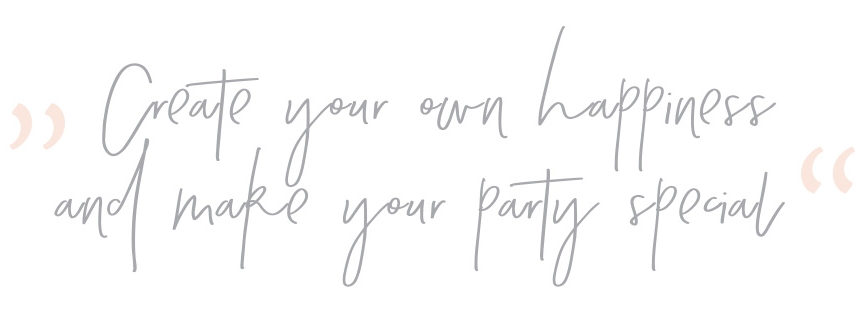 ”Create your own happiness
and make your party special“